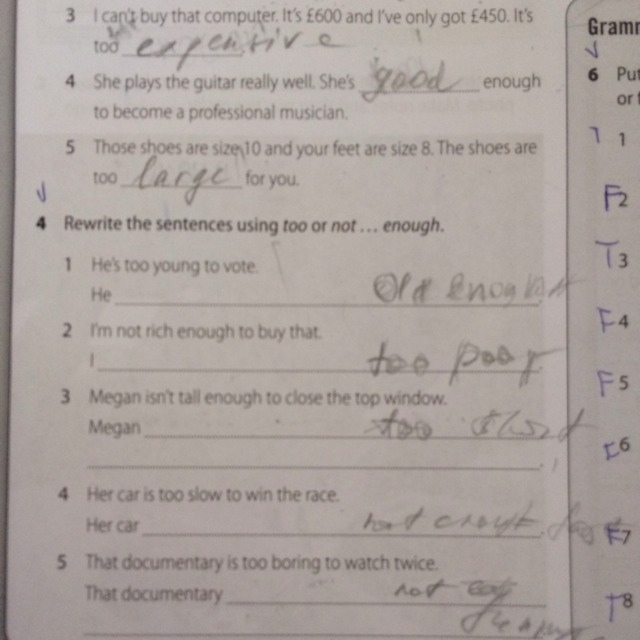 3 I can't buy that computer. It's £600 and I've only got £450. It's
too expensive
4 She plays the guitar really well. She's good enough
to become a professional musician.
5 Those shoes are size 10 and your feet are size 8. The shoes are
too large for you.
4 Rewrite the sentences using too or not ... enough.
1 He's too young to vote.
He old enough
2 I'm not rich enough to buy that.
I too poor
3 Megan isn't tall enough to close the top window.
Megan too
4 Her car is too slow to win the race.
Her car not
5 That documentary is too boring to watch twice.
That documentary not
Gramm
6 Put
or t
T 1
F 2
T 3
F 4
F 5
F 6
F 7
T 8